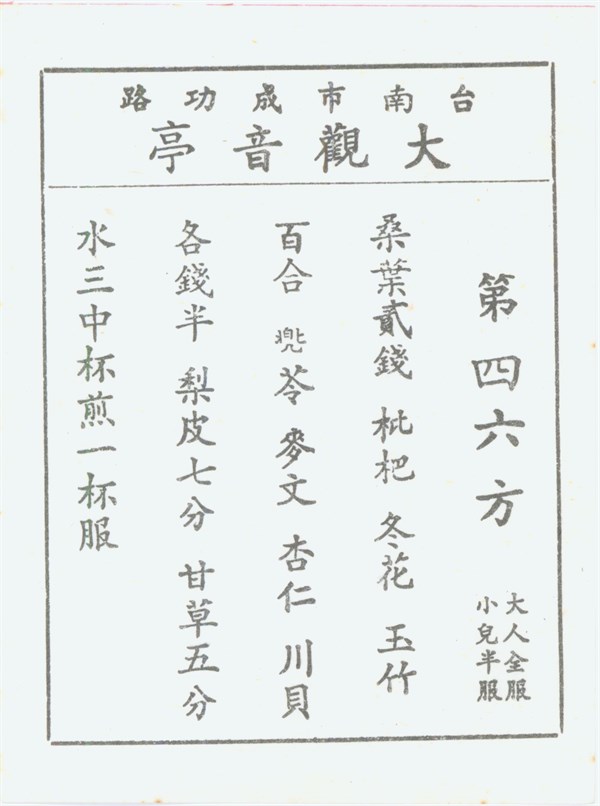 台南市成功路
大觀音亭
第四六方
大人全服
小兒半服
桑葉貳錢 枇杷 冬花 玉竹
百合 兠苓 麥文 杏仁 川貝
各錢半 梨皮七分 甘草五分
水三中杯煎一杯服